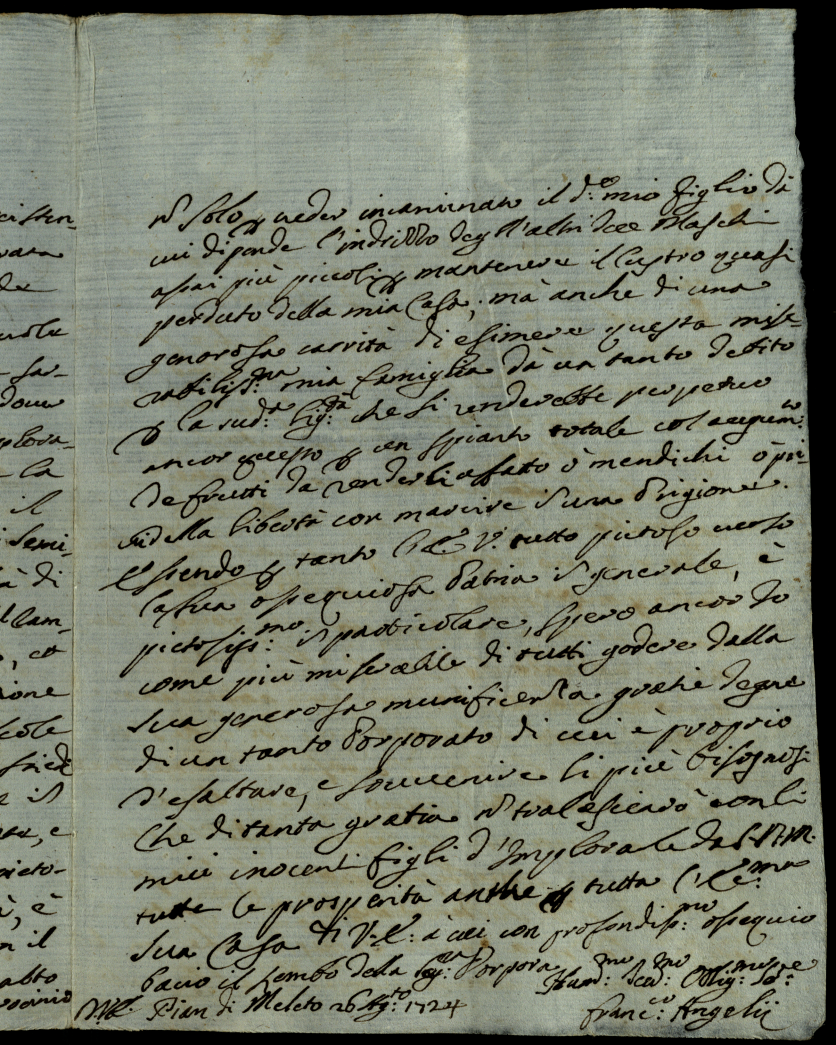 cisten-
vata
de
sa-
dove
plora-
la
il
semi-
à di
l cam-
, et
zione
cole
e il
, e
pieto-
à, è
n il
ñ solo p veder incaminato il d.º mio figlio dà
cui dipende l'indrizzo degl'altri dece Maschi
assai più piccoli, p mantenere il lustro quasi
perduto della mia Casa; mà anche di una
generosa carrità di esimere questa mise-
rabiliss.ma mia famiglia dà un tanto debito
p la sud.a sig.tà che si renderebbe perpetuo
ancor questo p un spianto totale col
de frutti da renderli affatto ò mendichi ò pri-
vi della libertà con marcire ĩ una Prigione.
Essendo p tanto l'E. V. tutto pietoso verso
la sua ossequiosa Patria ĩ generale, è
pietosiss.mo ĩ particolare, spero ancor Io
come più miserabile di tutti godere dalla
sua generosa munificenza gratie degne
di un tanto Porporato di cui è proprio
d'esaltare, e souvenire li più bisognosi
Che di tanta gratia ñ tralascierò con li
miei inocenti figli d'Implorarle dal S.
tutte le prosperità anche p tutta l'Ec.ma
sua Casa di V. E. à cui con profondiss.mo ossequio
bacio il Lembo della Porpora
Hum.mo Dev.mo Oblig.mo Ser.e
Pian di Meleto 26 Ag.to 1724
Franc.co Angelij